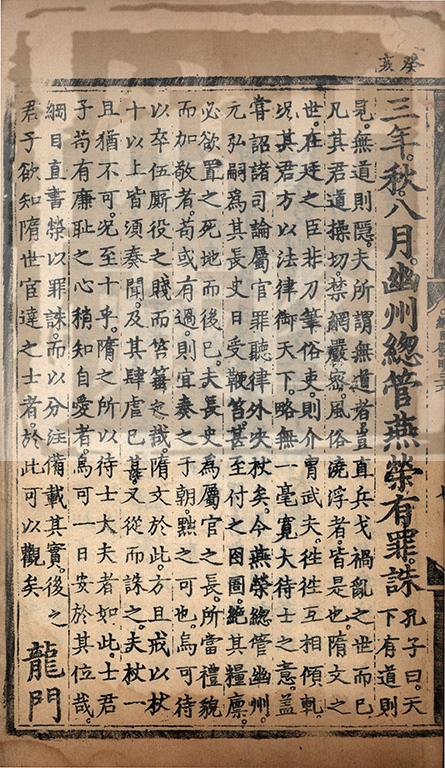 癸亥
三年。秋。八月。幽州總管燕榮有罪。誅
孔子曰。天
下有道則
見。無道則隱。夫所謂無道者。豈直兵戈禍亂之世而已。
凡其君道操切。禁網嚴密。風俗澆浮者。皆是也。隋文之
世。在廷之臣。非刀筆俗吏。則介冑武夫。徃徃互相傾軋。
况其君方以法律御天下。略無一毫寬大待士之意。蓋
嘗詔諸司論屬官罪。聽律外決杖矣。今燕榮總管幽州。
元弘嗣爲其長史。日受鞭笞。甚至付之囹圄。絶其糧廪。
必欲置之死地而後已。夫長史爲屬官之長。所當禮貌
而加敬者。苟或有過。則宜奏之于朝。黜之可也。烏可待
以卒伍厮役之賤而笞箠之哉。隋文於此。方且戒以杖
十以上皆須奏聞。及其肆虐已甚。又從而誅之。夫杖一
且猶不可。况至十乎。隋之所以待士大夫者如此。士君
子苟有廉耻之心。稍知自愛者。焉可一日安於其位哉。
綱目直書榮以罪誅。而以分注備載其實。後之
君子欲知隋世官達之士者。於此可以觀矣
龍門